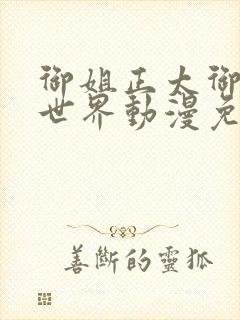 御姐正太御
世界動漫免
善斷的靈狐